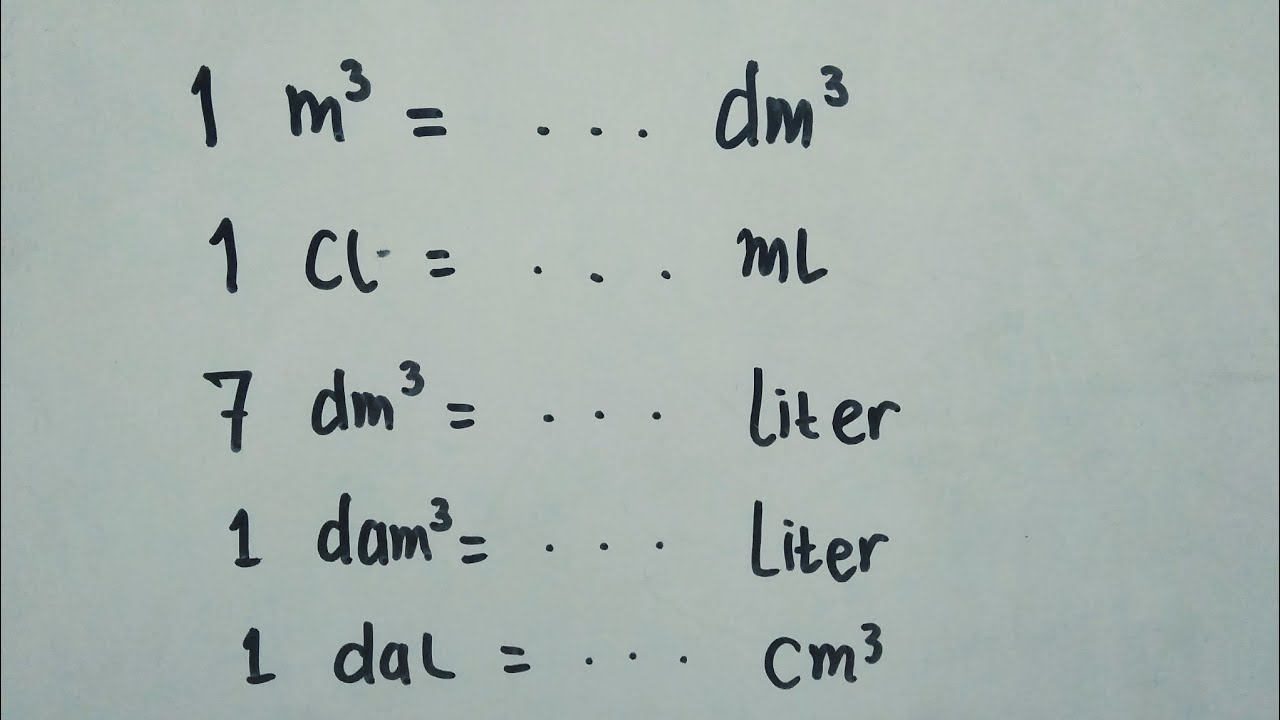 1 m³ = ... dm³
1 cl = ... mL
7 dm³ = ... liter
1 dam³ = ... Liter
1 dal = ... cm³